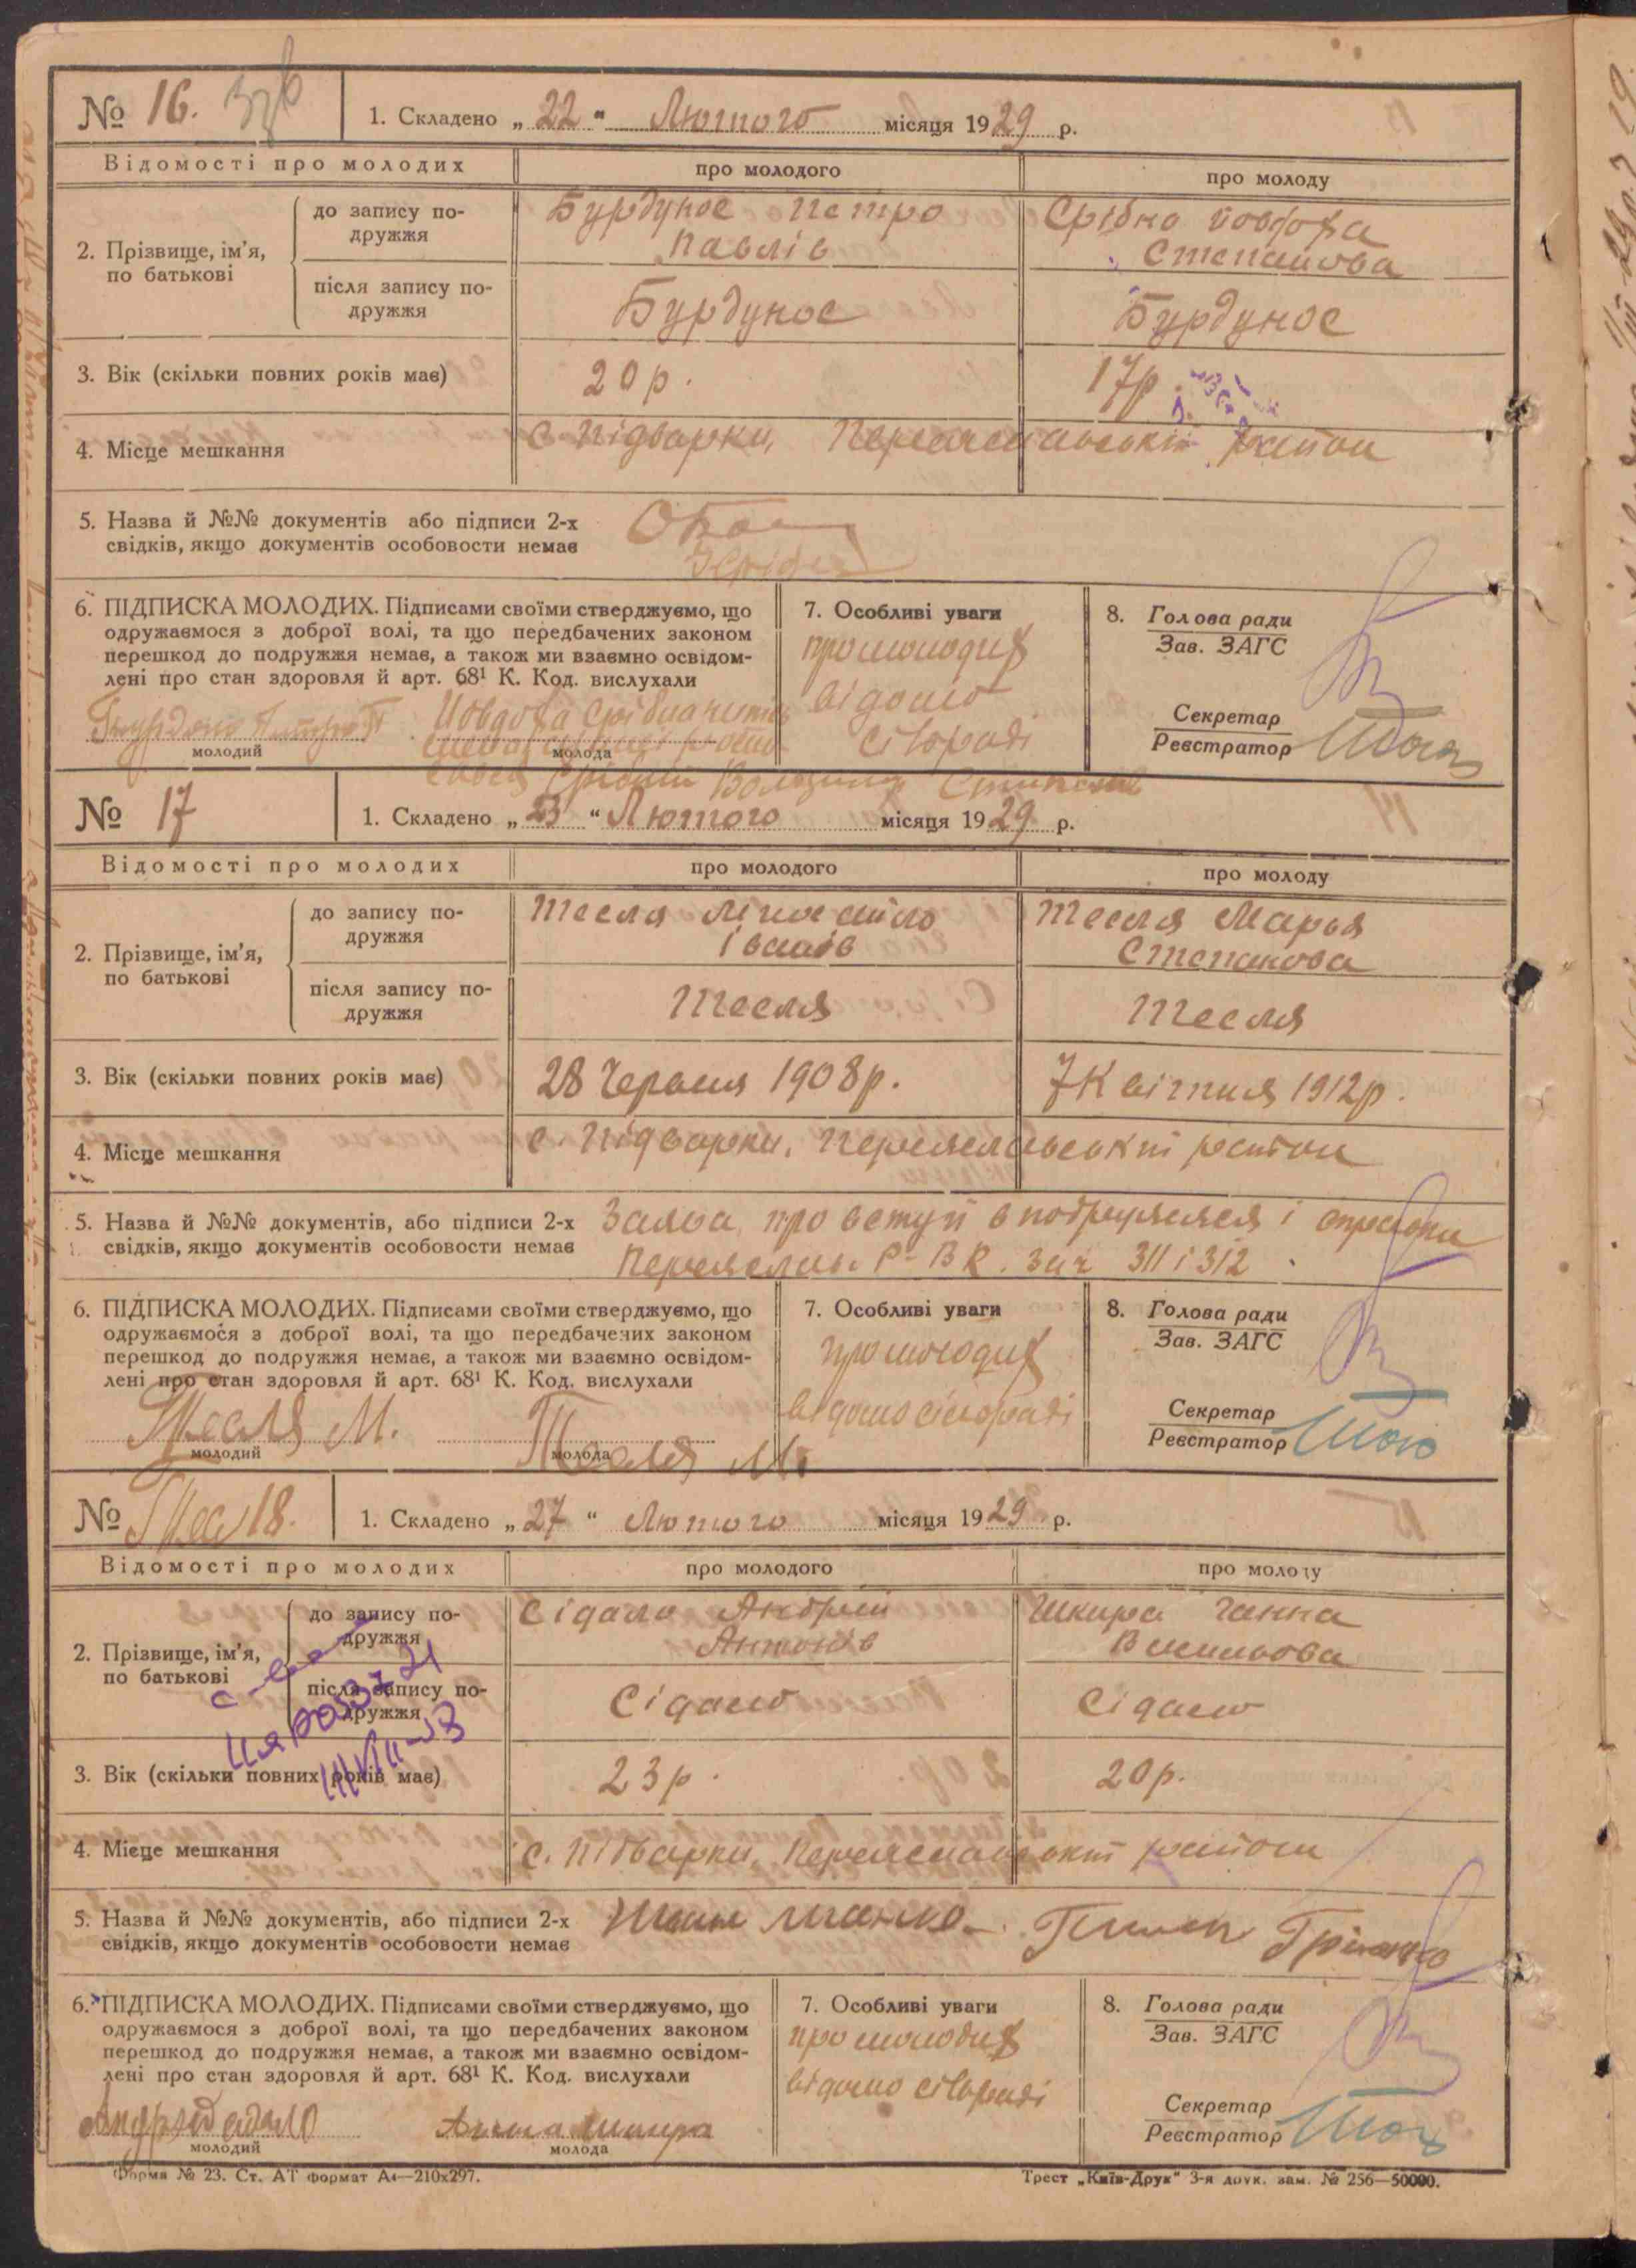 № 16. 1. Складено „22“ Лютого місяця 1929 р.
Відомості про молодих про молодого про молоду
2. Прізвище, ім'я, по батькові
до запису по-дружжя
Бурдунос Петро Срібна Йовдоха
Павлів Степанова
після запису по-дружжя
Бурдунос Бурдунос
3. Вік (скільки повних років має) 20 р. 17 р.
4. Місце мешкання с. Підварки, Переяславський район
5. Назва й №№ документів або підписи 2-х
свідків, якщо документів особовости немає
6. ПІДПИСКА МОЛОДИХ. Підписами своїми стверджуємо, що
одружаємося з доброї волі, та що передбачених законом
перешкод до подружжя немає, а також ми взаємно освідом-
лені про стан здоровля й арт. 68¹ К. Код. вислухали
Йовдоха Срібна
молодий молода
7. Особливі уваги
про молодих
відомо
сільраді
8. Голова ради
Зав. ЗАГС
Секретар
Реєстратор
№ 17 1. Складено „23“ Лютого місяця 1929 р.
Відомості про молодих про молодого про молоду
2. Прізвище, ім'я, по батькові
до запису по-дружжя
Тесля Тесля Марья
Іванів Степанова
після запису по-дружжя
Тесля Тесля
3. Вік (скільки повних років має) 28 Червня 1908 р. 7 Квітня 1912 р.
4. Місце мешкання с. Підварки, Переяславський район
5. Назва й №№ документів, або підписи 2-х
свідків, якщо документів особовости немає
Заява про вступ в і
Р-ВК. за № 311 і 312
6. ПІДПИСКА МОЛОДИХ. Підписами своїми стверджуємо, що
одружаємося з доброї волі, та що передбачених законом
перешкод до подружжя немає, а також ми взаємно освідом-
лені про стан здоровля й арт. 68¹ К. Код. вислухали
Тесля М. Тесля М.
молодий молода
7. Особливі уваги
про молодих
відомо сільраді
8. Голова ради
Зав. ЗАГС
Секретар
Реєстратор
№ 18. 1. Складено „27“ Лютого місяця 1929 р.
Відомості про молодих про молодого про молоду
2. Прізвище, ім'я, по батькові
до запису по-дружжя
Сідало Андрій Шкира Ганна
Антонів Васильова
після запису по-дружжя
Сідало Сідало
3. Вік (скільки повних років має) 23 р. 20 р.
4. Місце мешкання с. Підварки, Переяславський район
5. Назва й №№ документів, або підписи 2-х
свідків, якщо документів особовости немає
6. ПІДПИСКА МОЛОДИХ. Підписами своїми стверджуємо, що
одружаємося з доброї волі, та що передбачених законом
перешкод до подружжя немає, а також ми взаємно освідом-
лені про стан здоровля й арт. 68¹ К. Код. вислухали
Анна Шкира
молодий молода
7. Особливі уваги
про молодих
відомо сільраді
8. Голова ради
Зав. ЗАГС
Секретар
Реєстратор
Форма № 23. Ст. АТ формат А4—210х297. Трест „Київ-Друк“ 3-я друк. зам. № 256—50000.